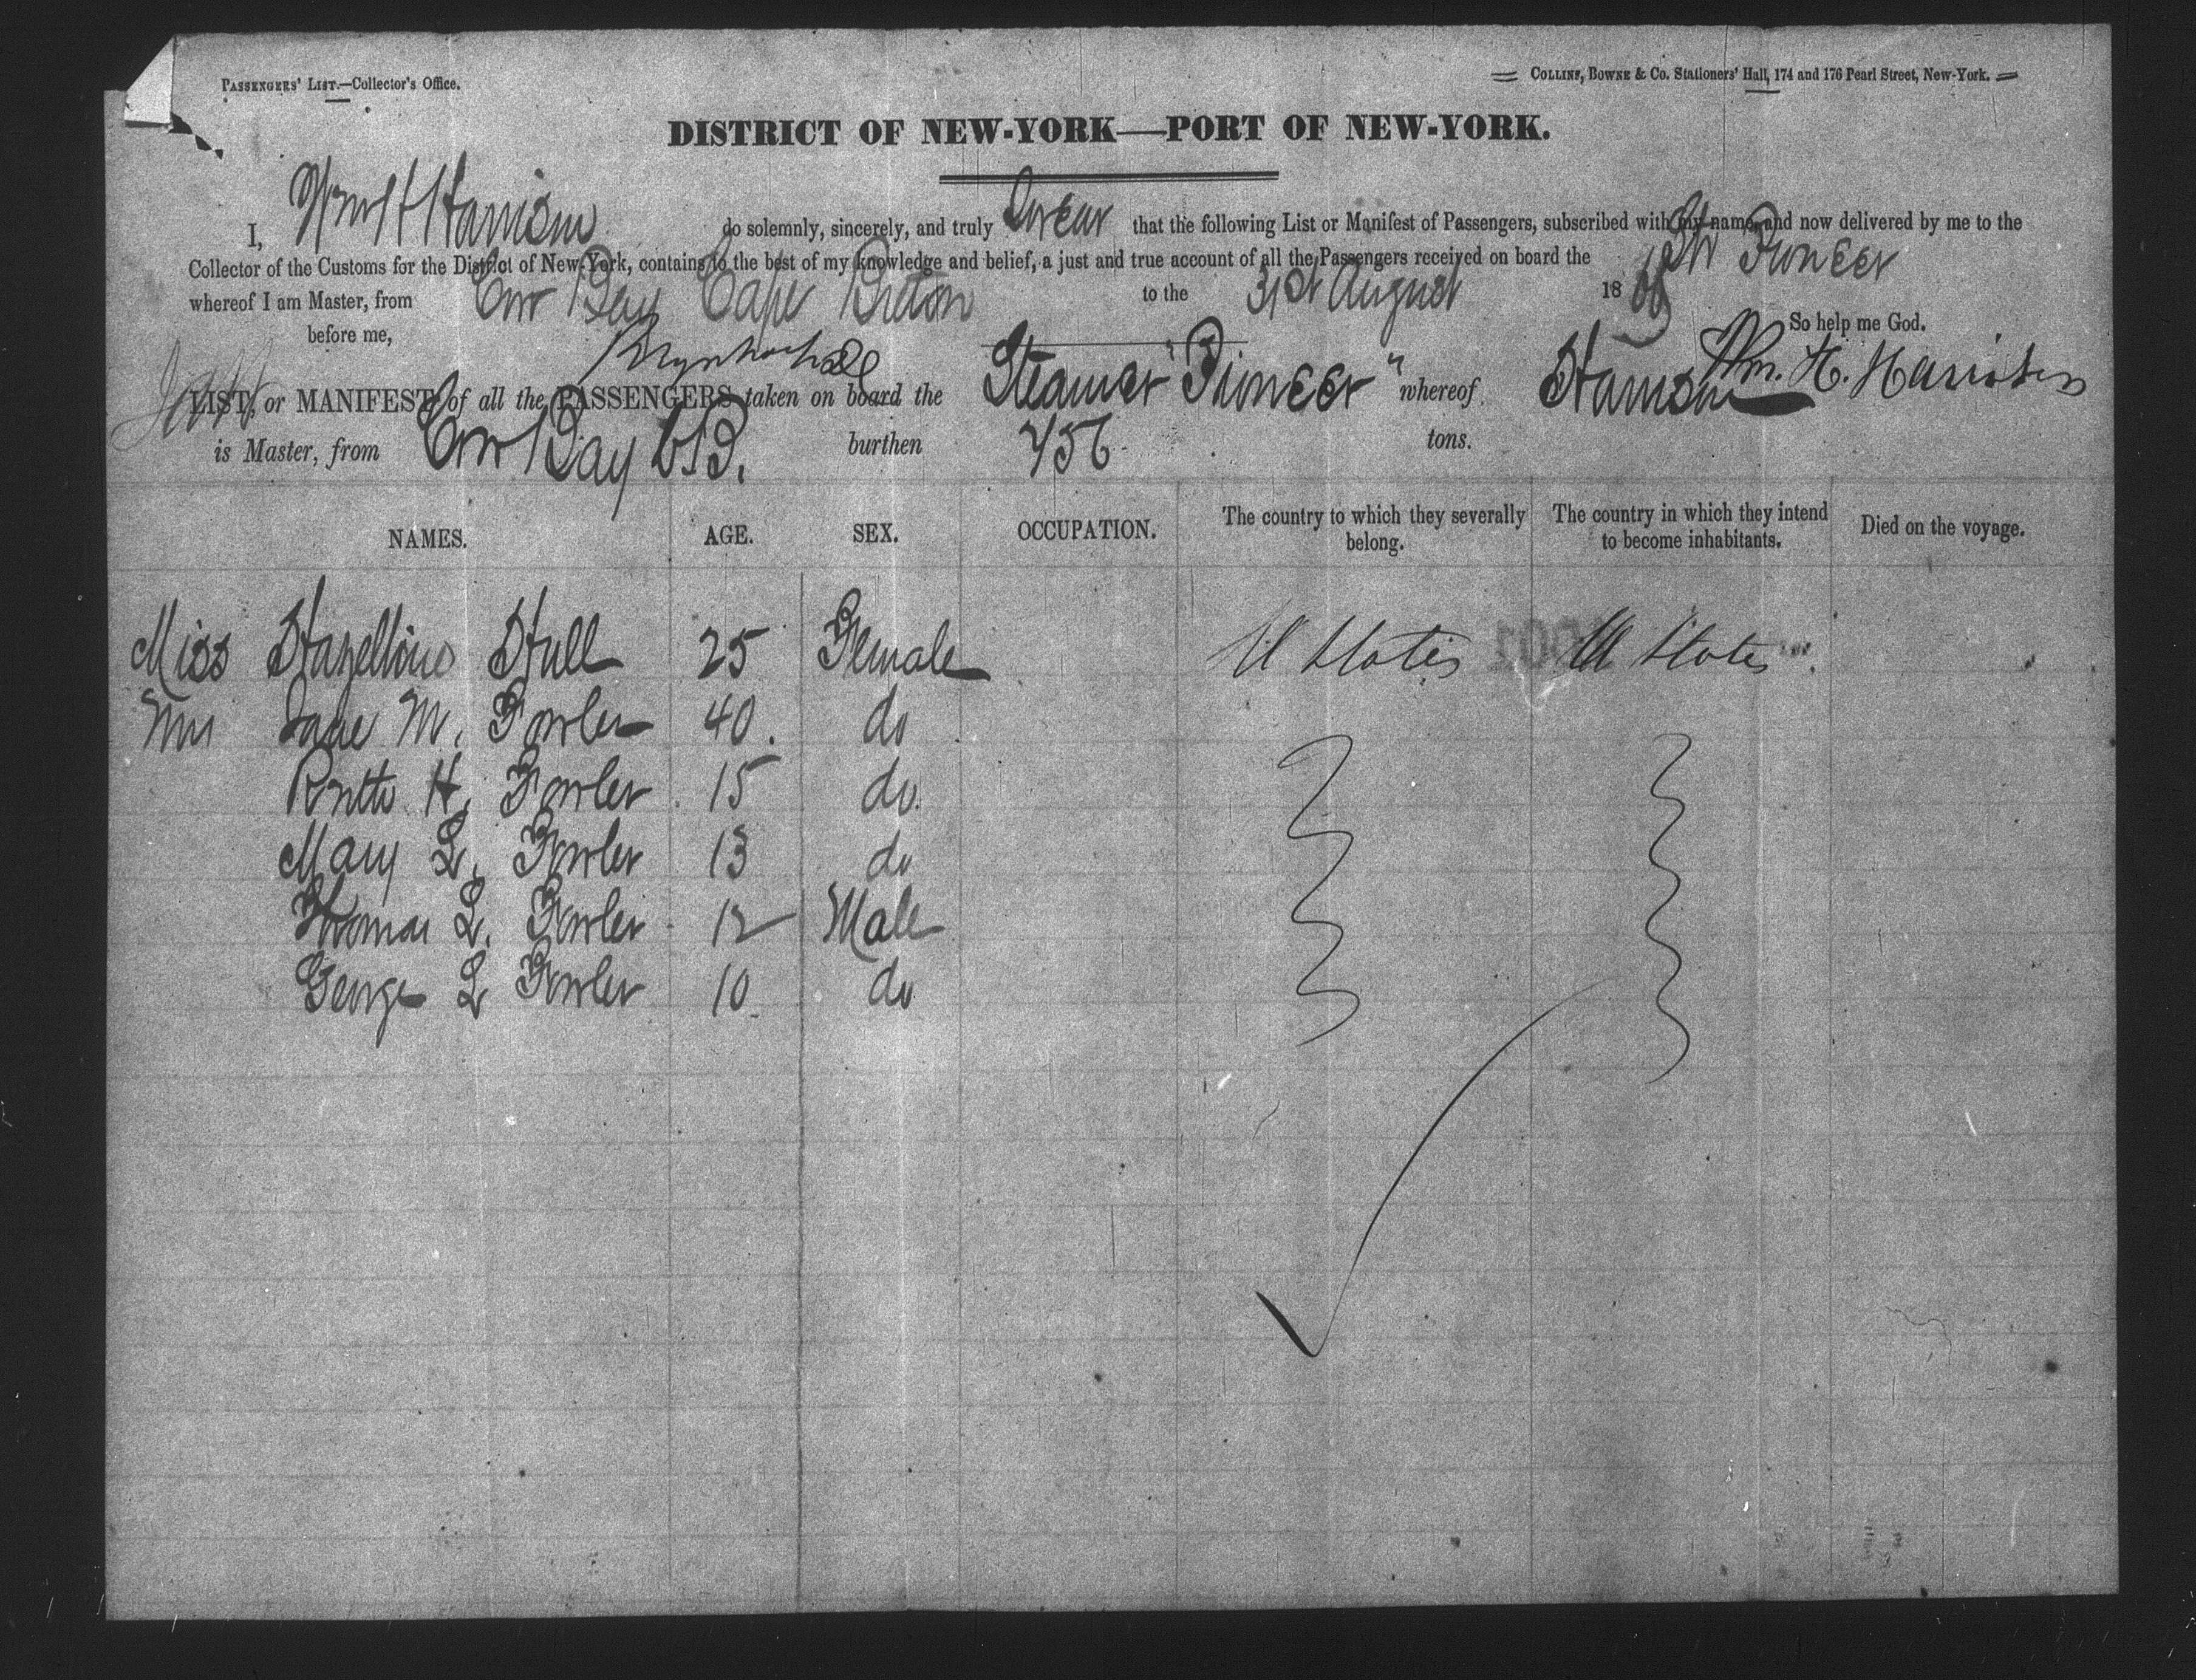 PASSENGERS' LIST.—Collector's Office.
COLLINS, BOWNE & Co. Stationers' Hall, 174 and 176 Pearl Street, New-York.
DISTRICT OF NEW-YORK—PORT OF NEW-YORK.
I, Wm H Harrison do solemnly, sincerely, and truly Swear that the following List or Manifest of Passengers, subscribed with my name, and now delivered by me to the
Collector of the Customs for the District of New-York, contains to the best of my knowledge and belief, a just and true account of all the Passengers received on board the Str Pioneer
whereof I am Master, from Cow Bay Cape Breton to the 31st August 1866
So help me God.
before me,
Wm. H. Harrison
LIST, or MANIFEST, of all the PASSENGERS taken on board the Steamer "Pioneer" whereof Harrison
is Master, from Cow Bay C B. burthen 456 tons.
NAMES. AGE. SEX. OCCUPATION. The country to which they severally belong. The country in which they intend to become inhabitants. Died on the voyage.
Miss Hazeltine Hull 25 Female U States U States
Mrs Jane M. Fowler 40. do
H. Fowler 15 do.
Mary L. Fowler 13 do
Thomas L. Fowler 12 Male
George L Fowler 10 do